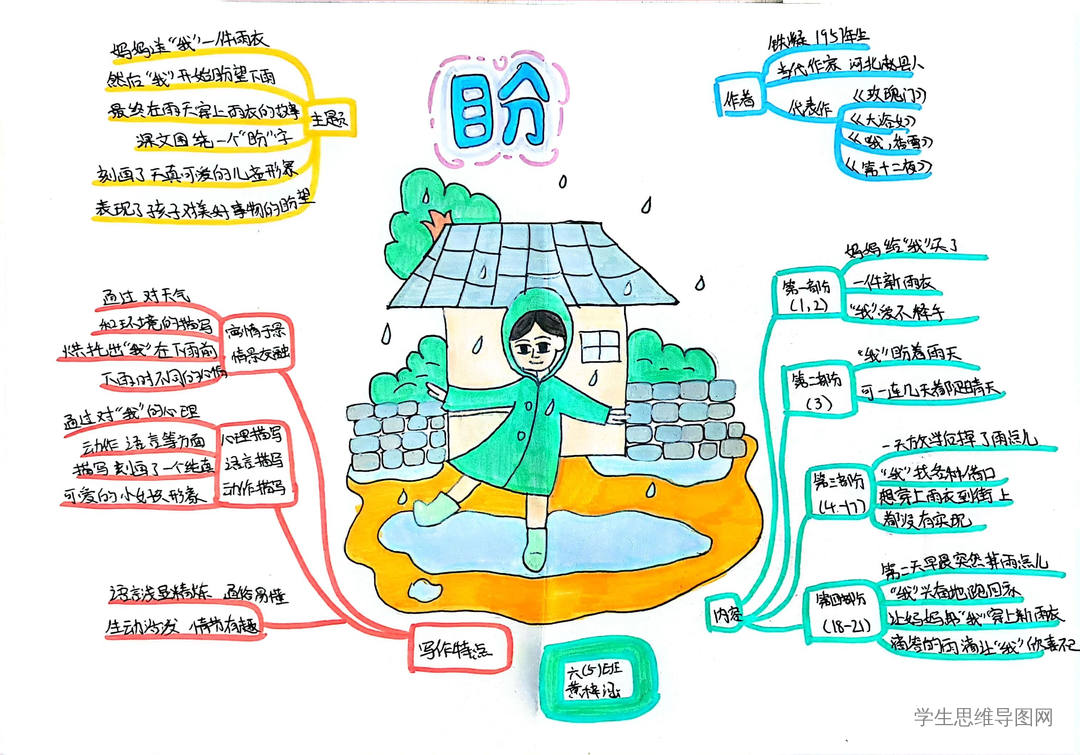 盼
妈妈送"我"一件雨衣
然后"我"开始盼望下雨
最终在雨天穿上雨衣的故事
课文围绕一个"盼"字
刻画了天真可爱的儿童形象
表现了孩子对美好事物的盼望
主题
作者
铁凝 1957年生
当代作家 河北赵县人
代表作
《玫瑰门》
《大浴女》
《哦,香雪》
《第十二夜》
通过 对天气
和环境的描写
烘托出"我"在下雨前
下雨时不同的心情
寓情于景
情景交融
通过对"我"的心理
动作 语言等方面
描写 刻画了一个纯真
可爱的小女孩形象
心理描写
语言描写
动作描写
语言浅显精炼 通俗易懂
生动活泼 情节有趣
写作特点
第一部分
(1,2)
妈妈给"我"买了
一件新雨衣
"我"爱不释手
第二部分
(3)
"我"盼着雨天
可一连几天都阳晴天
第三部分
(4-17)
一天放学后掉了雨点儿
"我"找各种借口
想穿上雨衣到街上
都没有实现
内容
第四部分
(18-21)
第二天早晨突然掉雨点儿
"我"兴奋地跑回家
让妈妈帮"我"穿上新雨衣
滴答的雨滴让"我"欣喜不已
六(5)班
黄梓涵
学生思维导图网